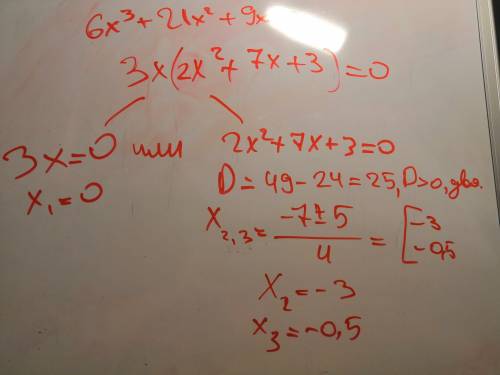 6x³ + 21x² + 9x
3x(2x² + 7x + 3) = 0
3x = 0 или 2x² + 7x + 3 = 0
x₁ = 0
D = 49 - 24 = 25, D>0, два.
x₂,₃ = (-7 ± 5)/4 = [-3
-0,5
x₂ = -3
x₃ = -0,5